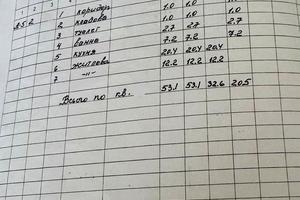 1 2 3 4
кв.2 1 коридор 1.0 1.0
2 кладова 1.0 1.0 1.0
3 туалет 2.7 2.7 2.7
4 ванна 7.2 7.2 7.2
5 кухня 20.4 20.4 20.4
6 житлова 12.2 12.2 12.2
7 -"-
Всього по кв. 53.1 53.1 32.6 20.5